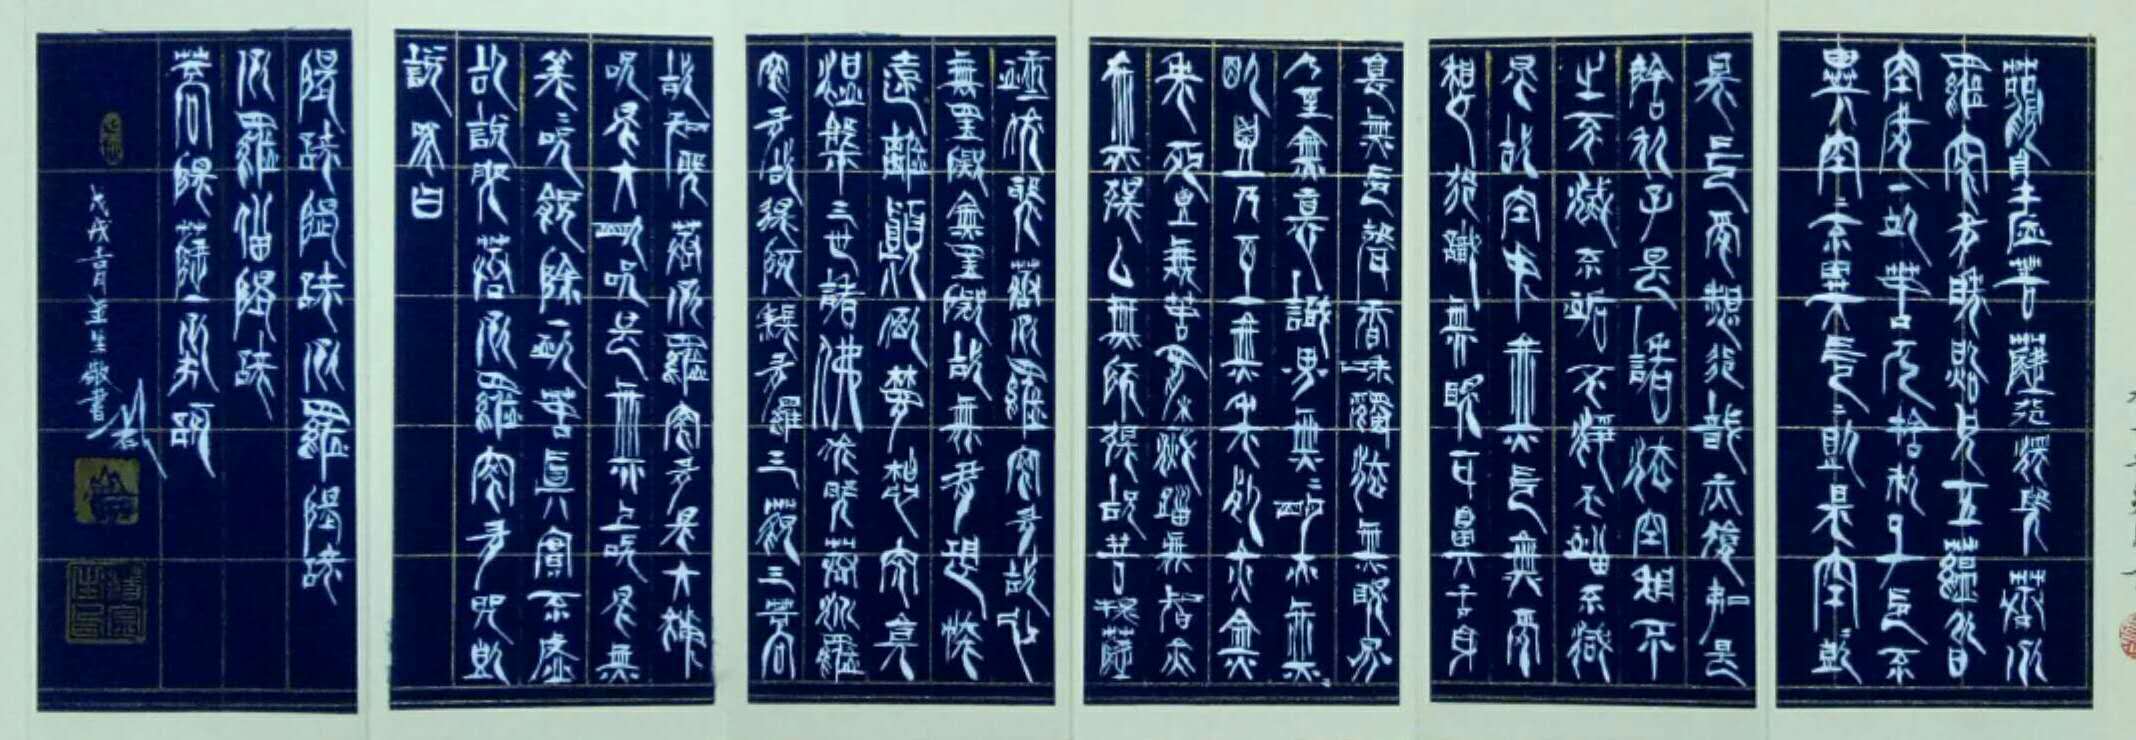 觀自在菩薩行深般若波
羅蜜多時照見五蘊皆
空度一切苦厄舍利子色不
異空=不異色=即是空即
是色受想行識亦復如是
舍利子是諸法空相不
生不滅不垢不淨不增不減
是故空中無色無受
想行識無眼耳鼻舌身
意無色聲香味觸法無眼界
乃至無意識界無=明亦無
明盡乃至無老死亦無
老死盡無苦集滅道無智亦
無得以無所得故菩提薩
埵依般若波羅蜜多故心
無罣礙無罣礙故無有恐怖
遠離顛倒夢想究竟
涅槃三世諸佛依般若波羅
蜜多故得阿耨多羅三藐三菩
故知般若波羅蜜多是大神
咒是大明咒是無上咒是無
等等咒能除一切苦真實不虛
故說般若波羅蜜多咒即
說咒曰
揭諦揭諦波羅揭諦
波羅僧揭諦
菩提薩婆訶
戊戌吉月 敬書